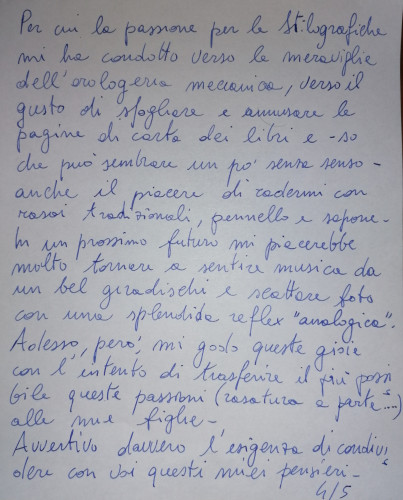 Per cui la passione per le Stilografiche
mi ha condotto verso le meraviglie
dell'orologeria meccanica, verso il
gusto di sfogliare e annusare le
pagine di carta dei libri e - so
che può sembrare un po' senza senso -
anche il piacere di radermi con
rasoi tradizionali, pennello e sapone -
In un prossimo futuro mi piacerebbe
molto tornare a sentire musica da
un bel giradischi e scattare foto
con una splendida reflex "analogica".
Adesso, però, mi godo queste gioie
con l'intento di trasferire il più possi
bile queste passioni (rasatura a parte...)
alle mie figlie -
Avvertivo davvero l'esigenza di condivi
dere con voi questi miei pensieri -
4/5